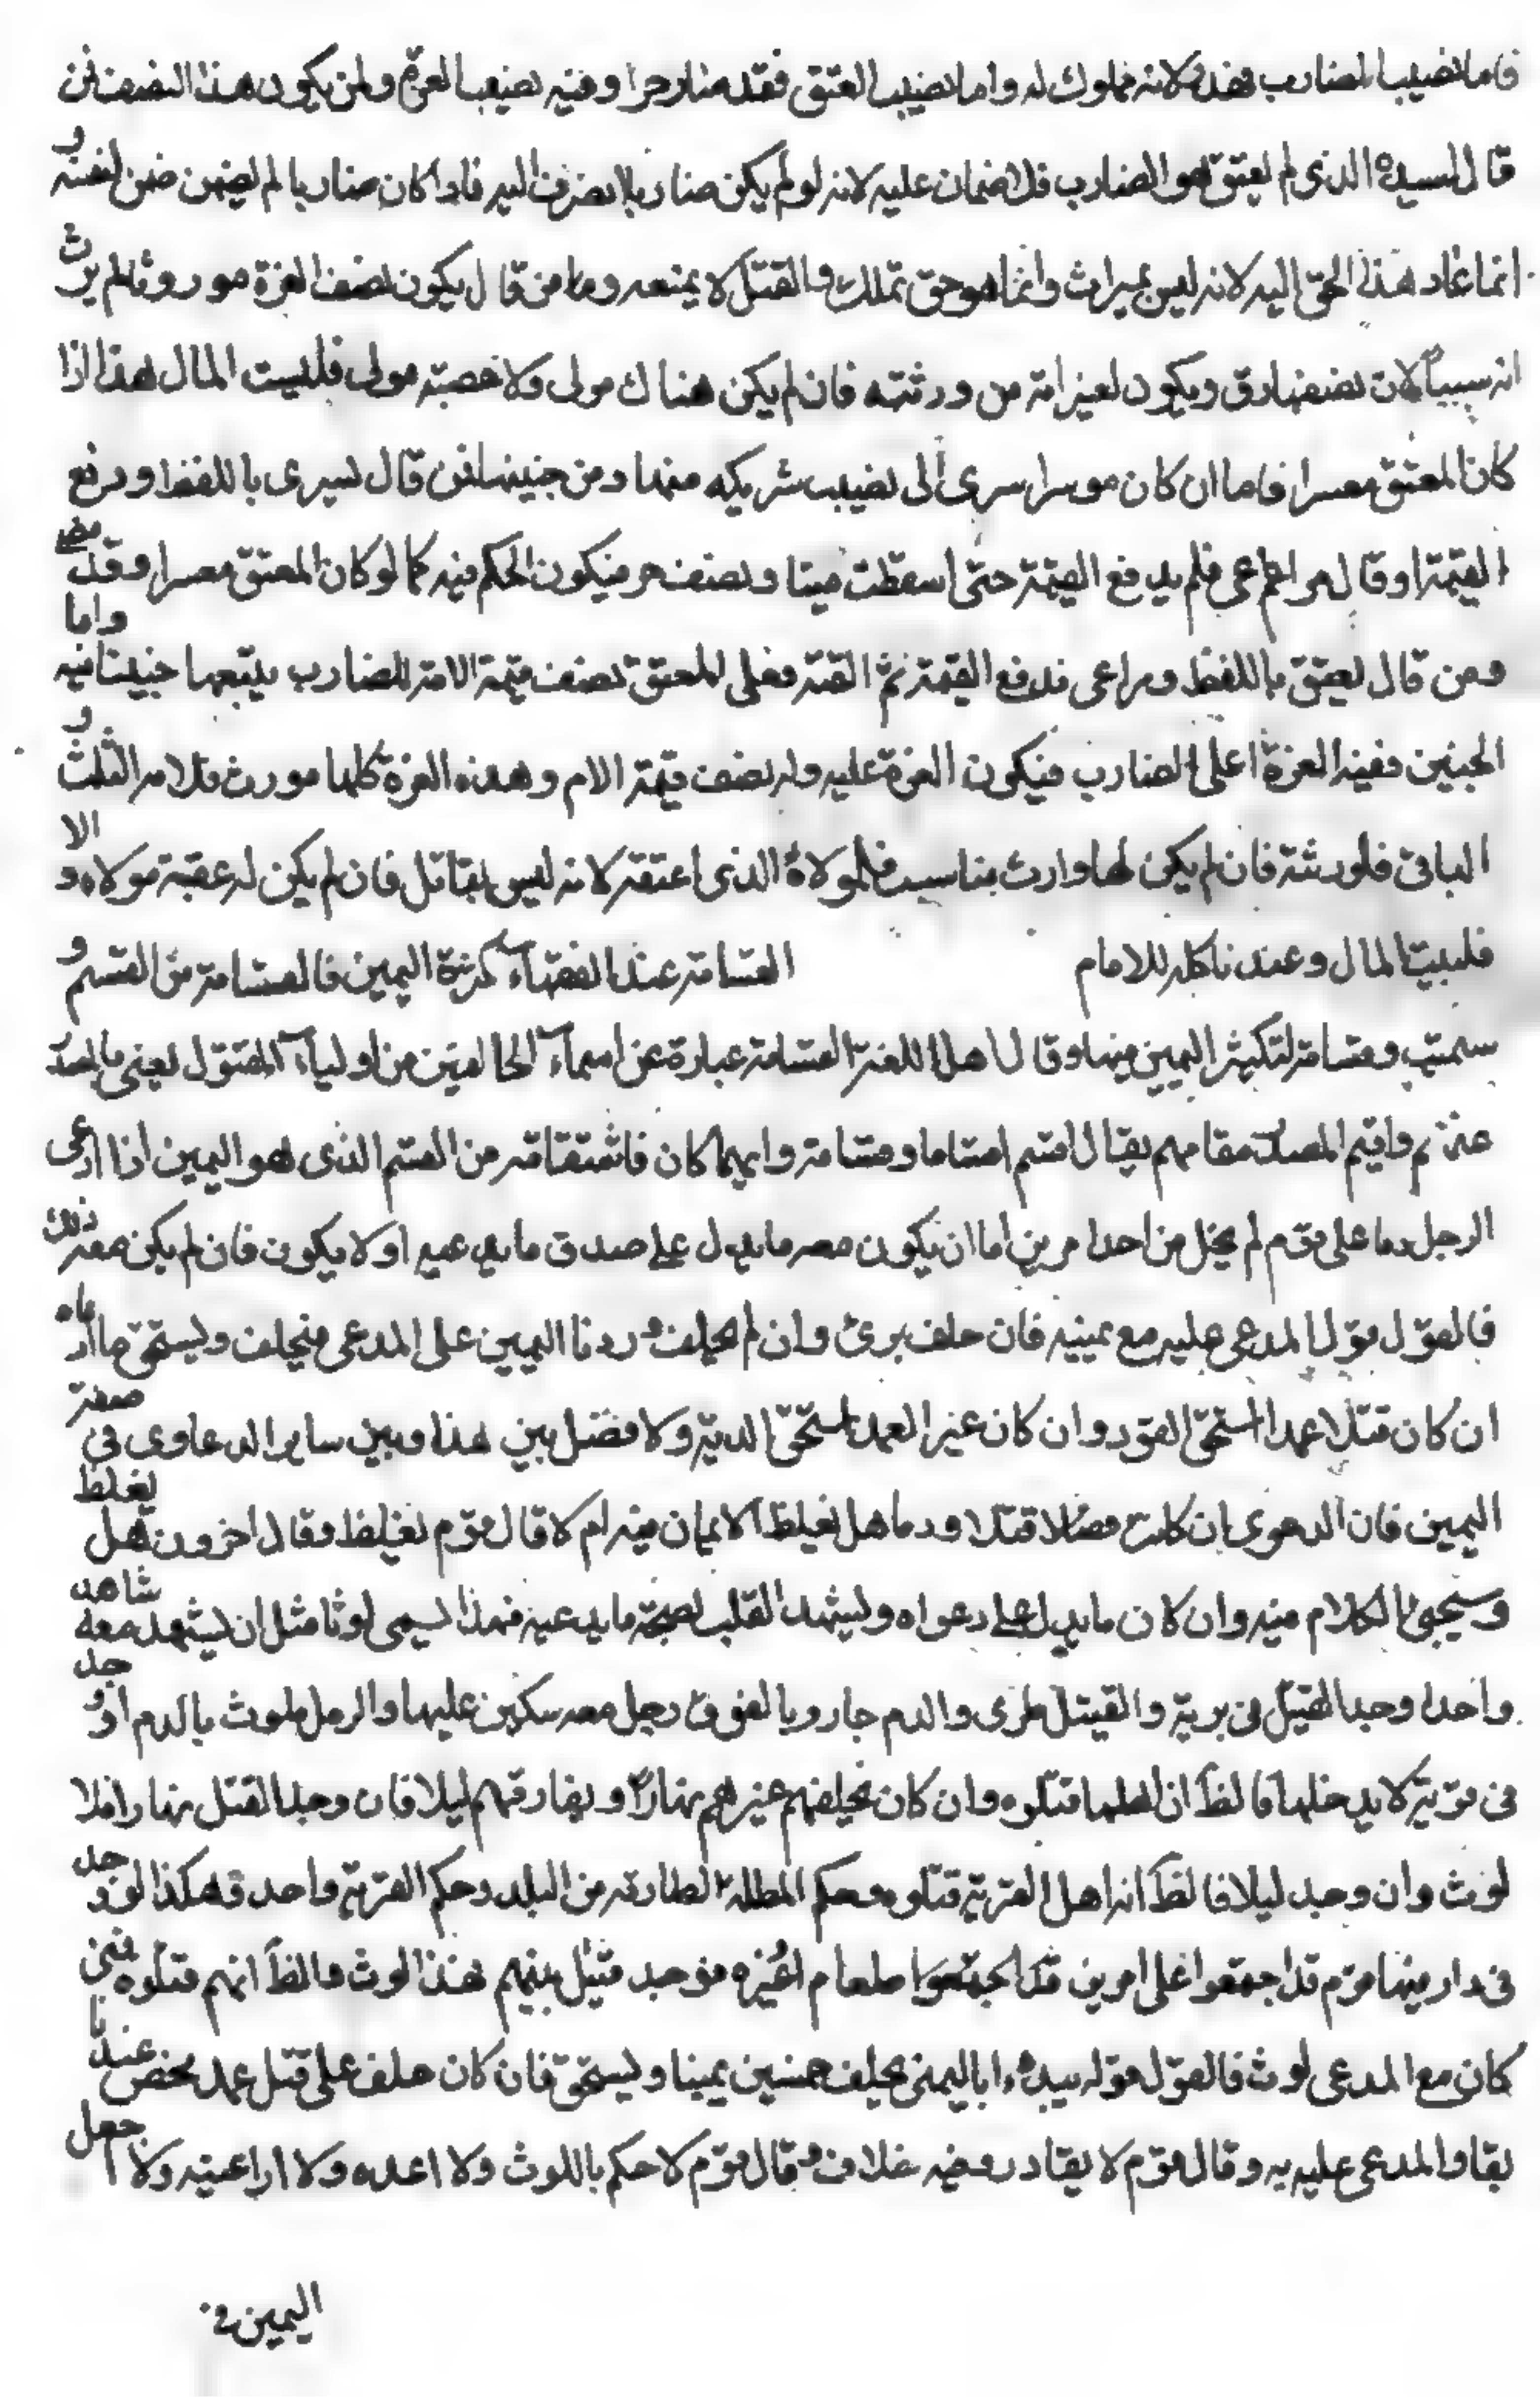 فاما نصيب الضارب فهدر لانه مملوك له واما نصيب العتق فقد صار حرا وفيه نصف الغرة ولمن يكون هذا النصف فمن
قال لسيده الذى لم يعتق هو الضارب فلا ضمان عليه لانه لو لم يكن ضاربا لانصرف اليه فاذا كان ضاربا لم يضمن ضمن لنفسه و
انما عاد هذا الحق اليه لانه ليس بميراث وانما هو حق تملك والقتل لا يمنعه وما من قال يكون نصف الغرة موروثا لم يرث
انه سيبا لان نصفها رق ويكون لغير امه من ورثته فان لم يكن هناك مولى ولا عصبة مولى فلبيت المال هذا اذا
كان المعتق معسرا فاما ان كان موسرا سرى الى نصيب شريكه منها ومن جنينها فمن قال يسرى باللفظ او دفع
القيمة او قال مراعى فلم يدفع القيمة حتى اسقطت ميتا ونصفه حر فيكون الحكم فيه كما لو كان المعتق معسرا وقد مضى
ومن قال يعتق باللفظ ومراعى فدفع القيمة ثم القته فعلى المعتق نصف قيمة الامة للضارب يتبعها جنينها فيه واما
الجنين ففيه الغرة اعلى الضارب فيكون الغرة عليه وله نصف قيمة الام وهذه الغرة كلها موروث فلامه الثلث و
الباقى فلورثته فان لم يكن لها وارث مناسب فلمولاه الذى اعتقه لانه ليس بقاتل فان لم يكن له عقبة مولاه و الا
فلبيت المال وعندنا كله للامام القسامة عند الفقهاء كثرة اليمين فالقسامة من القسم و
سميت وقسامة لتكثير اليمين فيها وقال اهل اللغة القسامة عبارة عن اسماء الحالفين من اولياء المقتول يعنى بالمصدر
عنهم واقيم المصدر مقامهم يقال اقسم اقساما وقسامة وايهما كان فاشتقاقه من القسم الذى هو اليمين اذا ادعى
الرجل دما على قوم لم يخل من احد امرين اما ان يكون معه ما يدل على صدق ما يدعيه او لا يكون فان لم يكن معه ذلك
فالقول قول المدعى عليه مع يمينه فان حلف برئ وان لم يحلف رددنا اليمين على المدعى فيحلف ويستحق ما ادعاه
ان كان قتلا عمدا استحق القود وان كان غير العمد استحق الدية ولا فصل بين هذا وبين ساير الدعاوى فى صفة
اليمين فان الدعوى ان كانت مضلا قتلا ودما هل يغلظ الايمان فيه ام لا قال قوم يغلظ وقال اخرون هل يغلظ
وسيجئ الكلام فيه وان كان ما يدل على دعواه ويشهد القلب بصحة ما يدعيه فهذا يسمى لوثا مثل ان يشهد معه شاهد
واحد او وجد القتيل فى برية والقتيل طرى والدم جار وبالقرب رجل معه سكين عليها والرجل ملوث بالدم او وجد
فى قرية لا يدخلها فالظ ان اهلها قتلوه وان كان يخلفهم غيرهم نهارا ويفارقهم ليلا فان وجد القتل نهارا فلا
لوث وان وجد ليلا فالظ انه اهل القرية قتلوه وحكم المطلة الطارقة من البلد وحكم القرية واحد وهكذا لو وجد
فى دار فيها قوم قد اجمعوا على امرين قد اجتمعوا طعام او غيره فوجد قتيل بينهم هذا لوث والظ انهم قتلوه فمتى
كان مع المدعى لوث فالقول قوله يبدء اباليمنى يحلف خمسين يمينا ويستحق فان كان حلف على قتل عمد محض عندنا
يقاد المدعى عليه به وقال قوم لا يقاد وفيه خلاف وقال قوم لا حكم باللوث ولا اعده ولا اراعيه ولا اجعل
اليمين فى